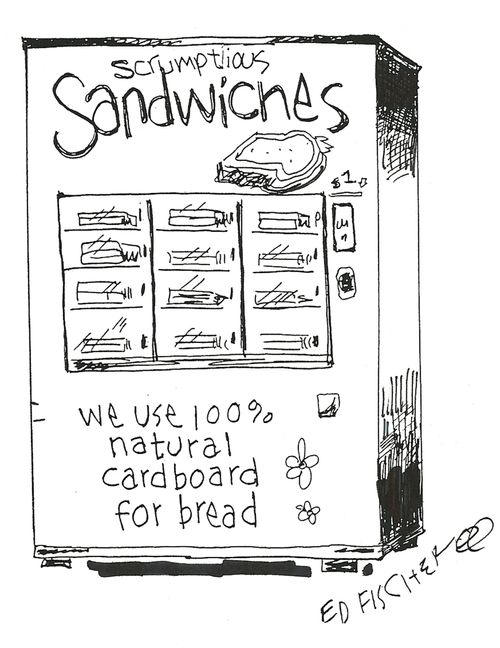 scrumptious
Sandwiches
$1
we use 100%
natural
cardboard
for bread
ED FISCHER